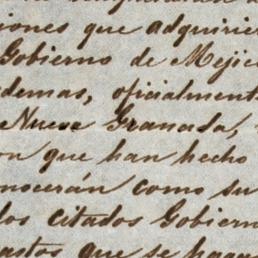 iones que adquirie
Gobierno de Mejic
demas, oficialment
Nueva Granada,
on que han hecho
nocerán como su
los citados Gobiern
astos que se haga